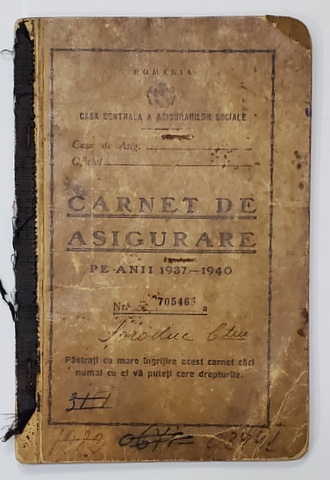 ROMANIA
CASA CENTRALA A ASIGURARILOR SOCIALE
Casa de Asig.
Oficiul
CARNET DE
ASIGURARE
PE ANII 1937-1940
Nr. 705463 a
Păstrați cu mare îngrijire acest carnet căci
numai cu el vă puteți cere drepturile.